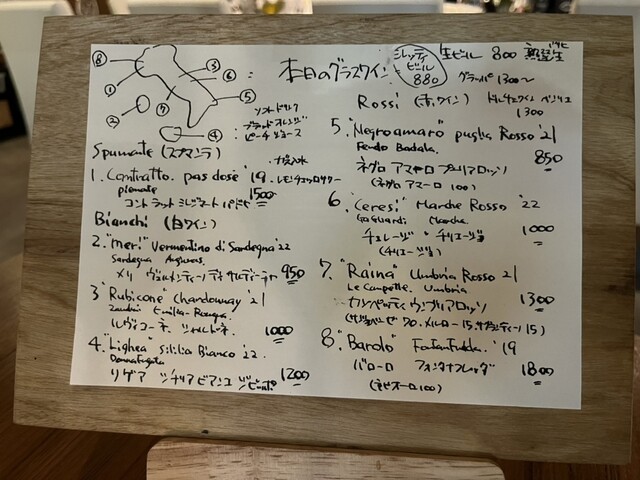 ⑧
③
①
⑥
②
⑦
⑤
④
本日のグラスワイン
ミレッティ
ビール
880
生ビール 800
グラッパ 1300〜
ソフトドリンク
ブラッドオレンジ
ピーチジュース
・ガス入水
・レモンチェッロサワー
Spumante (スプマンテ)
1. Contratto pas dose '19
piemonte 1500
コントラット ミレジマート パドゼ
Bianchi (白ワイン)
2. "Meri" Vermentino di Sardegna '22
Sardegna Argiolas
メリ ヴェルメンティーノディ サルディーニャ 950
3 "Rubicone" Chardonnay '21
Emilia-Romagna
ルヴィコーネ シャルドネ 1000
4. "Lighea" Sicilia Bianco '22
Donnafugata
リゲア シチリア ビアンコ ジビッボ 1200
Rossi (赤ワイン)
1300
5. "Negroamaro" puglia Rosso '21
Feudo Badala 850
ネグロ アマーロ プーリアロッソ
(ネグロ アマーロ 100)
6. "Ceresi" Marche Rosso '22
Marche 1000
チェレージ・チリエージョ
(チリエージョ)
7. "Raina" Umbria Rosso 21
Le Campette Umbria
カンペッティ ウンブリアロッソ 1300
(サンジョベーゼ 70 メルロー 15 サグランティーノ 15)
8. "Barolo" Fontanafredda '19
バローロ フォンタナフレッダ 1800
(ネビオーロ 100)